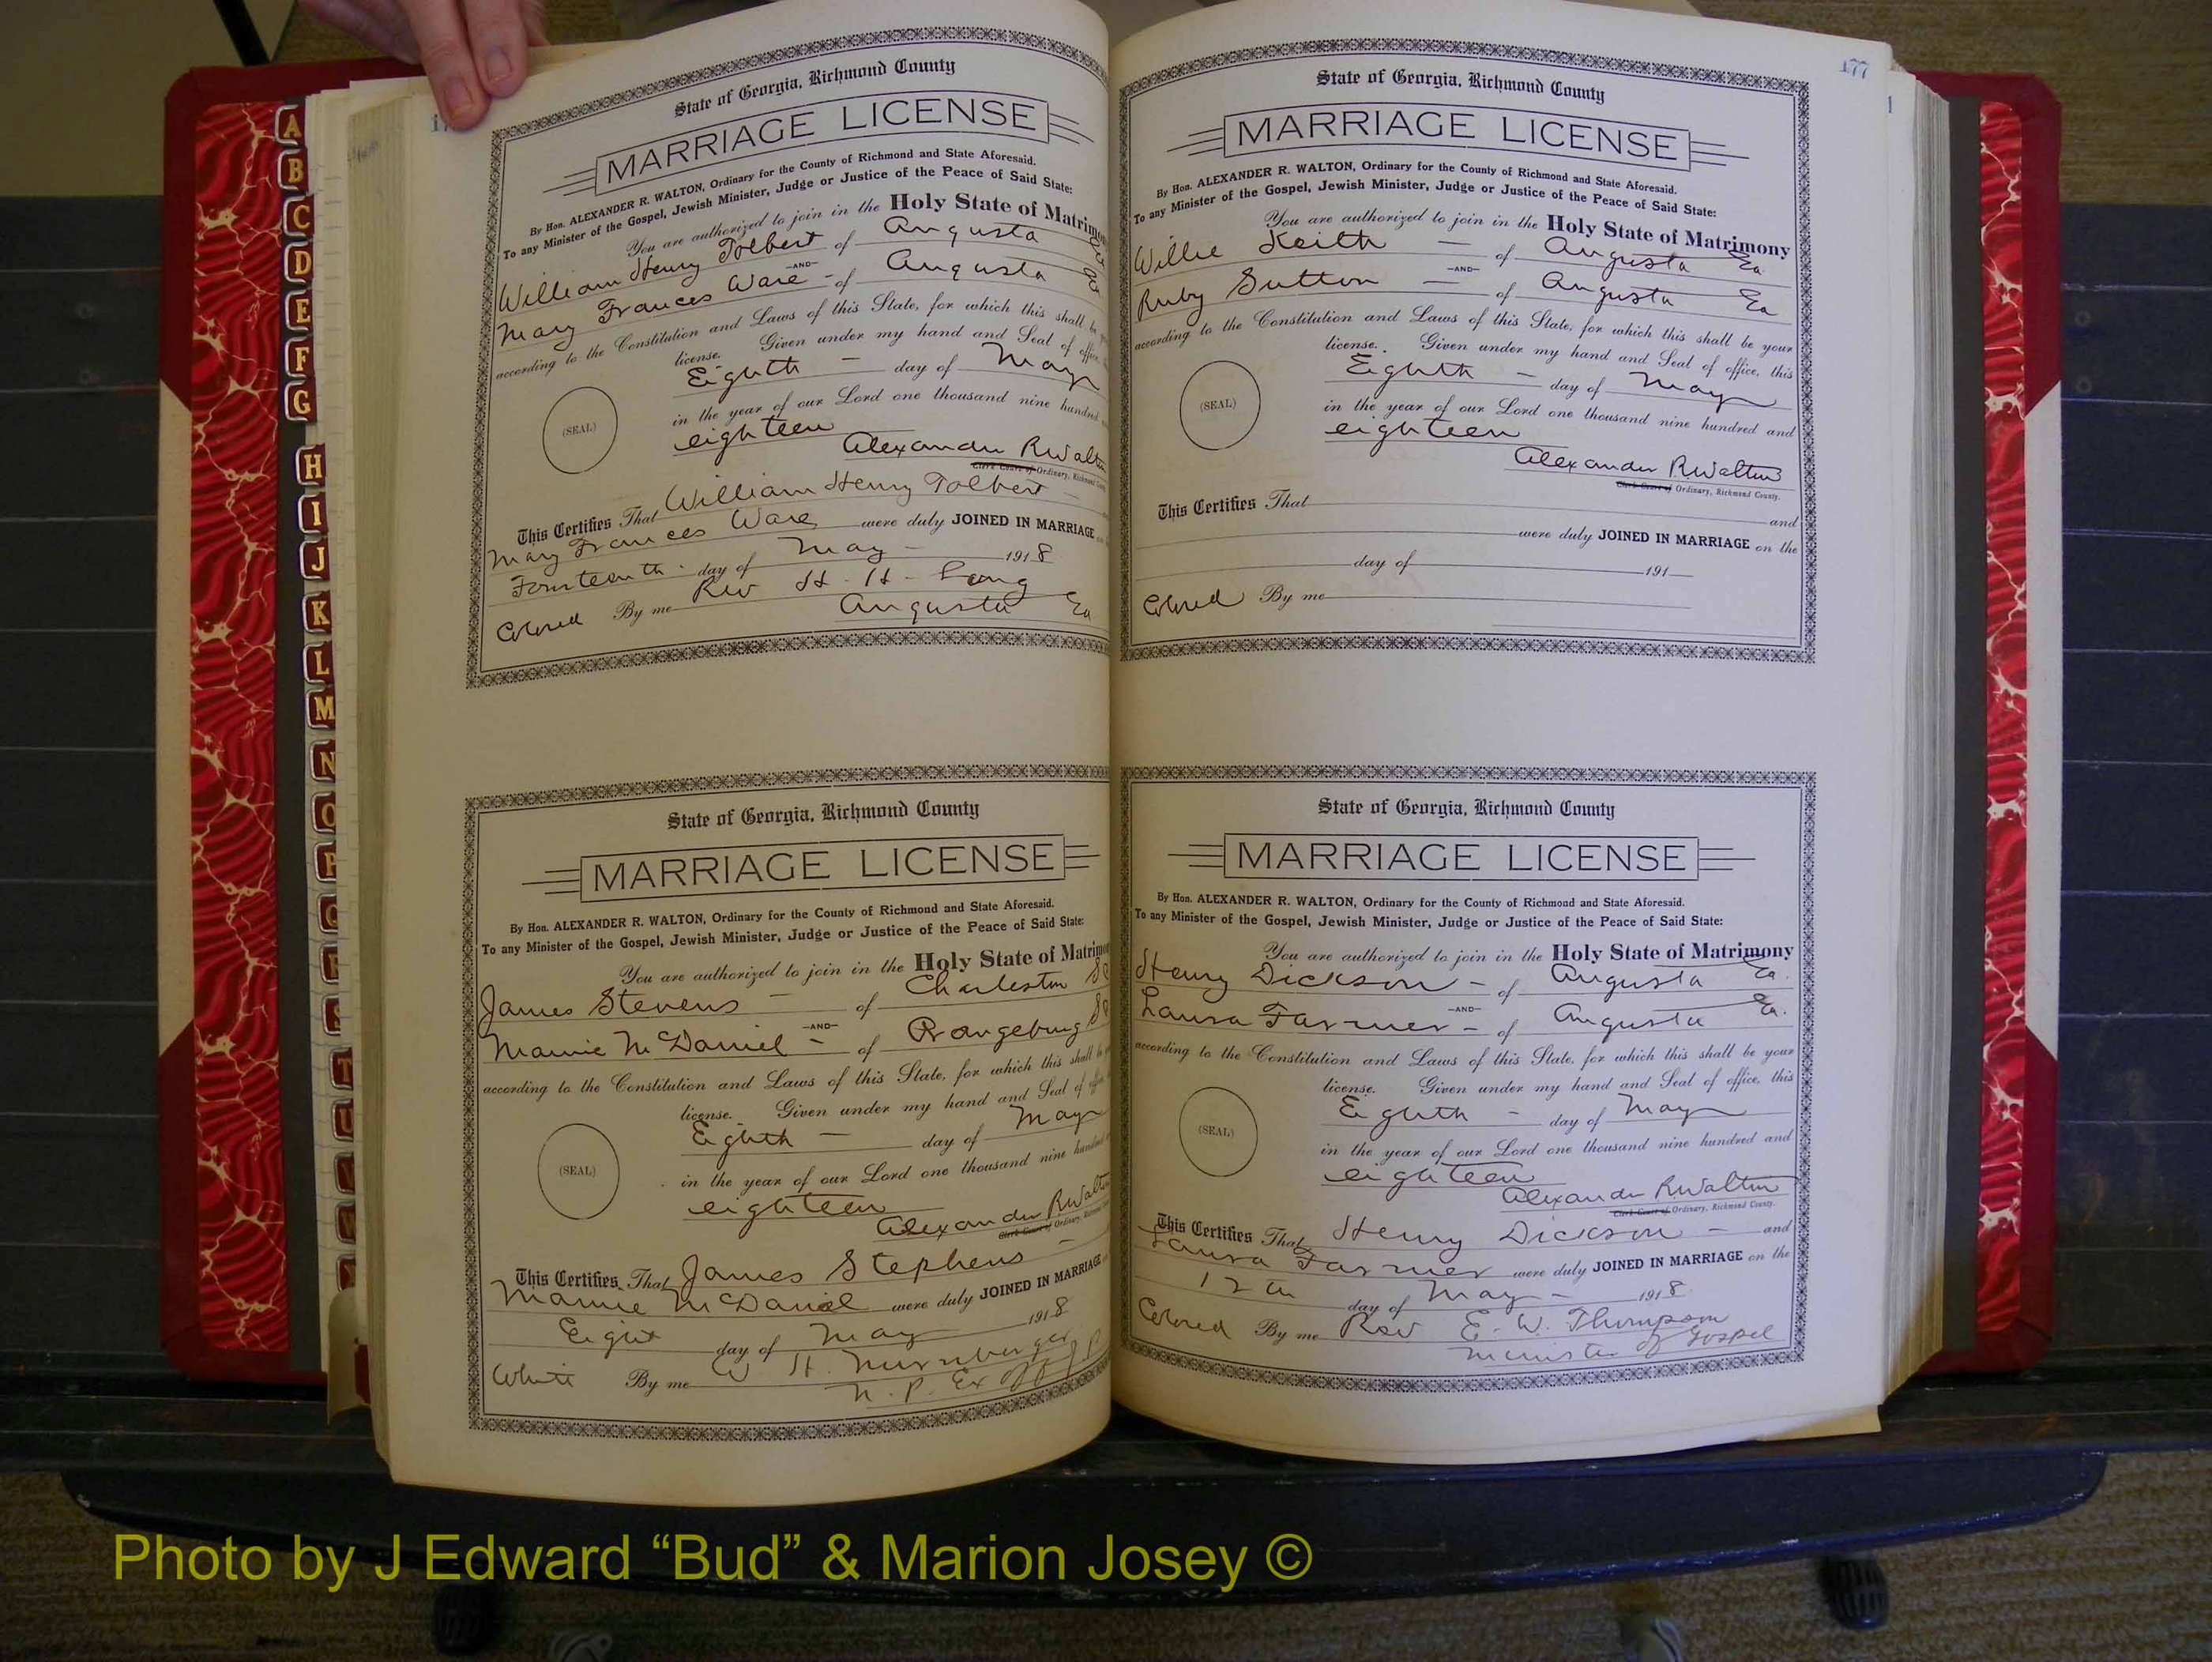 A
B
C
D
E
F
G
H
I
J
K
L
M
N
O
P
Q
R
S
T
U
W
State of Georgia, Richmond County
MARRIAGE LICENSE
By Hon. ALEXANDER R. WALTON, Ordinary for the County of Richmond and State Aforesaid.
To any Minister of the Gospel, Jewish Minister, Judge or Justice of the Peace of Said State:
You are authorized to join in the Holy State of Matrimony
William Henry Tolbert of Augusta Ga
—AND—
Mary Frances Ware - of Augusta Ga
according to the Constitution and Laws of this State, for which this shall be
license. Given under my hand and Seal of office,
Eighth — day of May
(SEAL)
in the year of our Lord one thousand nine hundred
eighteen
Alexander R Walton
Clerk Court of Ordinary, Richmond County
This Certifies That William Henry Tolbert
Mary Frances Ware were duly JOINED IN MARRIAGE
Fourteenth - day of May - 1918
Colored By me Rev H. H. Long
Augusta Ga
State of Georgia, Richmond County
MARRIAGE LICENSE
By Hon. ALEXANDER R. WALTON, Ordinary for the County of Richmond and State Aforesaid.
To any Minister of the Gospel, Jewish Minister, Judge or Justice of the Peace of Said State:
You are authorized to join in the Holy State of Matrimony
James Stevens — of Charleston SC
—AND—
Mamie McDaniel - of Orangeburg SC
according to the Constitution and Laws of this State, for which this shall be
license. Given under my hand and Seal of office
Eighth — day of May
(SEAL)
in the year of our Lord one thousand nine hundred
eighteen
Alexander R Walton
Clerk Court of Ordinary, Richmond
This Certifies That James Stephens —
Mamie McDaniel were duly JOINED IN MARRIAGE
Eight day of May 1918
White By me W. H. Nurnberger
N. P. Ex Off J P
177
State of Georgia, Richmond County
MARRIAGE LICENSE
By Hon. ALEXANDER R. WALTON, Ordinary for the County of Richmond and State Aforesaid.
To any Minister of the Gospel, Jewish Minister, Judge or Justice of the Peace of Said State:
You are authorized to join in the Holy State of Matrimony
Willie Keith — of Augusta Ga
—AND—
Ruby Sutton — of Augusta Ga
according to the Constitution and Laws of this State, for which this shall be your
license. Given under my hand and Seal of office, this
Eighth — day of May
(SEAL)
in the year of our Lord one thousand nine hundred and
eighteen
Alexander R. Walton
Clerk Court of Ordinary, Richmond County.
This Certifies That and
were duly JOINED IN MARRIAGE on the
day of 191
Colored By me
State of Georgia, Richmond County
MARRIAGE LICENSE
By Hon. ALEXANDER R. WALTON, Ordinary for the County of Richmond and State Aforesaid.
To any Minister of the Gospel, Jewish Minister, Judge or Justice of the Peace of Said State:
You are authorized to join in the Holy State of Matrimony
Henry Dickson - of Augusta Ga.
—AND—
Laura Farmer - of Augusta Ga.
according to the Constitution and Laws of this State, for which this shall be your
license. Given under my hand and Seal of office, this
Eighth - day of May
(SEAL)
in the year of our Lord one thousand nine hundred and
eighteen
Alexander R Walton
Clerk Court of Ordinary, Richmond County.
This Certifies That Henry Dickson - and
Laura Farmer were duly JOINED IN MARRIAGE on the
12th day of May - 1918.
Colored By me Rev E. W. Thompson
Minister of Gospel
Photo by J Edward “Bud” & Marion Josey ©